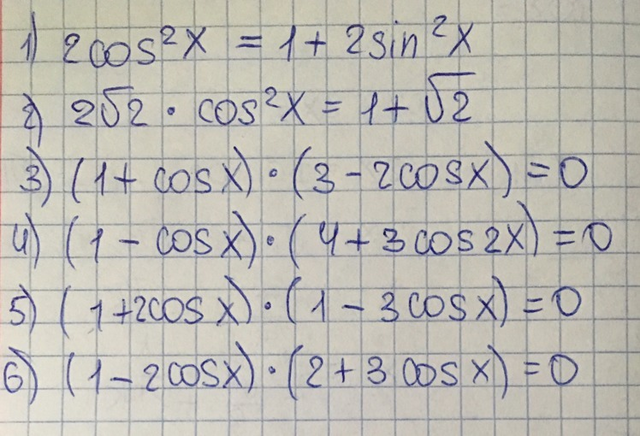 1) 2cos²x = 1 + 2sin²x
2) 2√2 · cos²x = 1 + √2
3) (1 + cosx) · (3 - 2cosx) = 0
4) (1 - cosx) · (4 + 3cos2x) = 0
5) (1+2cosx) · (1 - 3cosx) = 0
6) (1 - 2cosx) · (2 + 3cosx) = 0